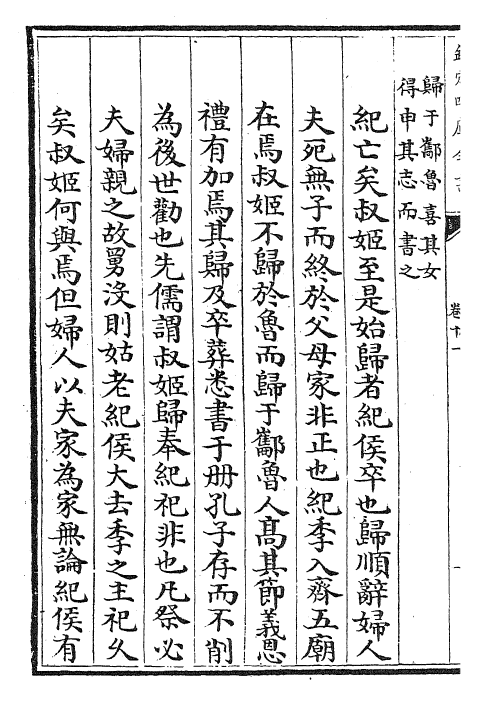 歸于酅魯喜其女
得申其志而書之
紀亡矣叔姬至是始歸者紀侯卒也歸順辭婦人
夫死無子而終於父母家非正也紀季入齊五廟
在焉叔姬不歸於魯而歸于酅魯人髙其節義恩
禮有加焉其歸及卒葬悉書于册孔子存而不削
為後世勸也先儒謂叔姬歸奉紀祀非也凡祭必
夫婦親之故舅沒則姑老紀侯大去季之主祀久
矣叔姬何與焉但婦人以夫家為家無論紀侯有